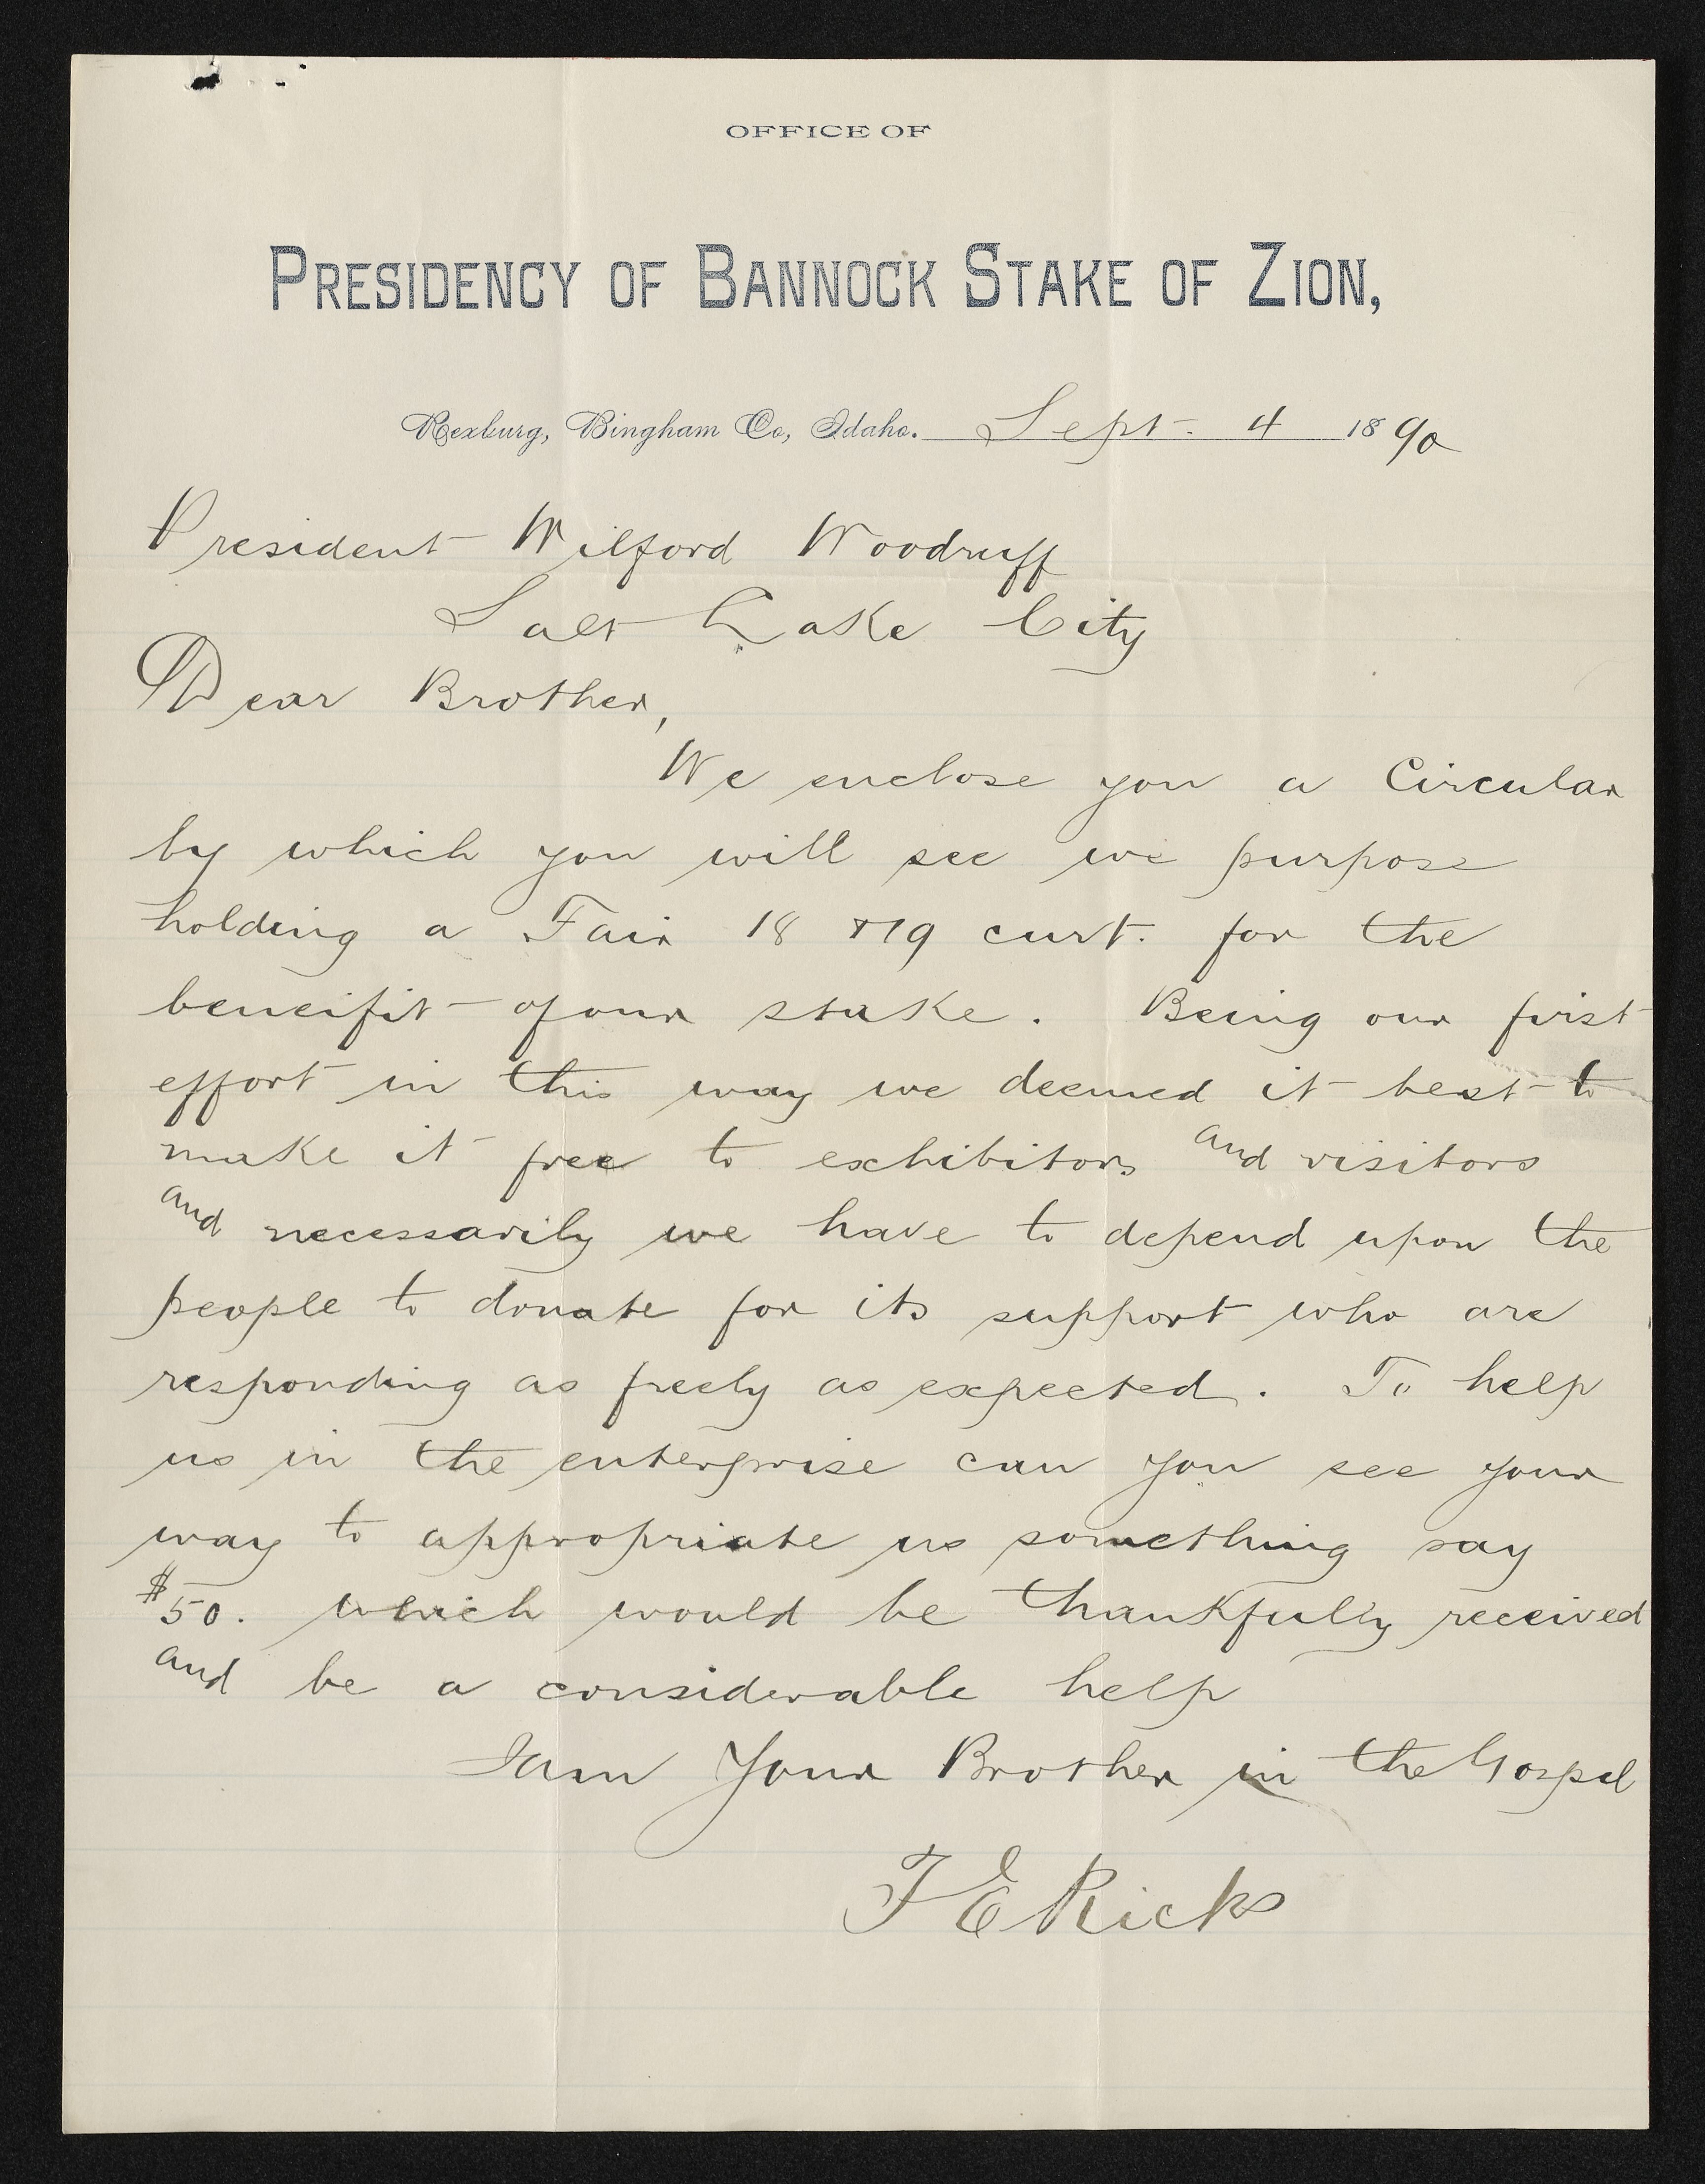 OFFICE OF
PRESIDENCY OF BANNOCK STAKE OF ZION,
Rexburg, Bingham Co, Idaho. Sept. 4 1890
President Wilford Woodruff
Salt Lake City
Dear Brother,
We enclose you a Circular
by which you will see we purpose
holding a Fair 18 & 19 curt. for the
beneifit of our stake. Being our first
effort in this way we deemed it best to
make it free to exhibitors and visitors
and necessarily we have to depend upon the
people to donate for its support who are
responding as freely as expected. To help
us in the enterprise can you see your
way to appropriate us something say
$50. which would be thankfully received
and be a considerable help
I am Your Brother in the Gospel
T E Ricks